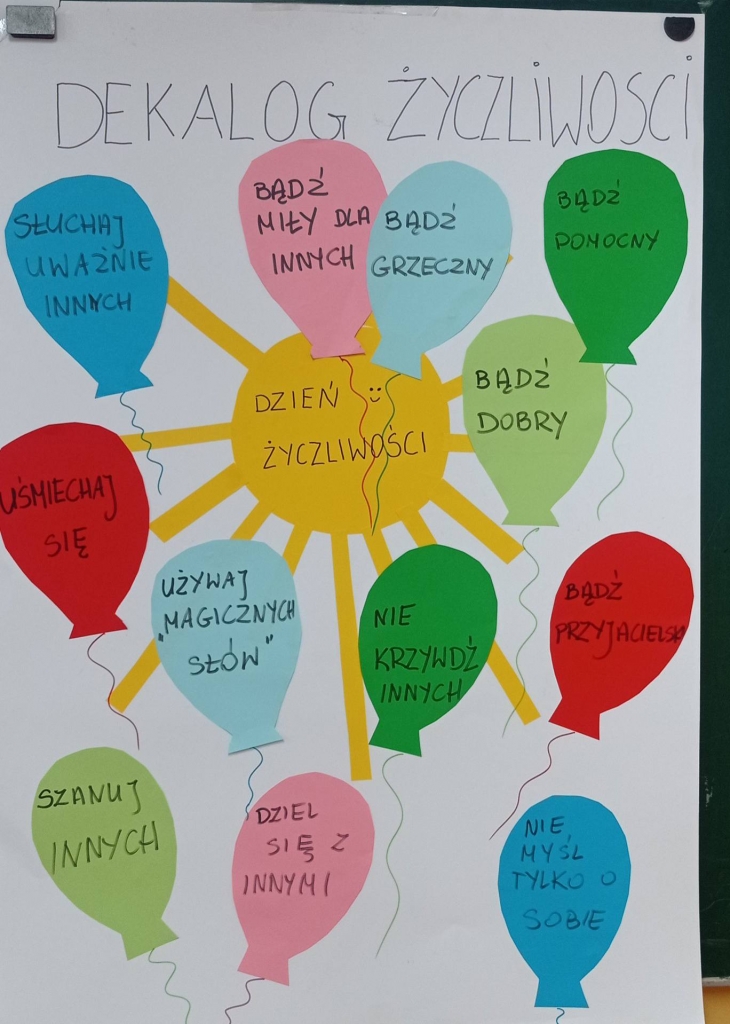 DEKALOG ŻYCZLIWOŚCI
SŁUCHAJ
UWAŻNIE
INNYCH
BĄDŹ
MIŁY DLA
INNYCH
BĄDŹ
GRZECZNY
BĄDŹ
POMOCNY
DZIEŃ
ŻYCZLIWOŚCI
BĄDŹ
DOBRY
UŚMIECHAJ
SIĘ
UŻYWAJ
"MAGICZNYCH
SŁÓW"
NIE
KRZYWDŹ
INNYCH
BĄDŹ
PRZYJACIELSKI
SZANUJ
INNYCH
DZIEL
SIĘ Z
INNYMI
NIE
MYŚL
TYLKO O
SOBIE